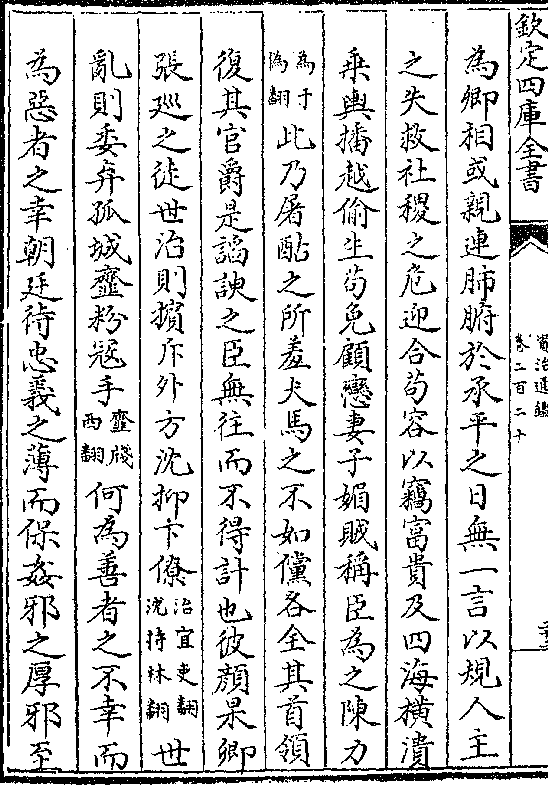 欽定四庫全書
資治通鑑
卷二百二十
為卿相或親連肺腑於承平之日無一言以規人主
之失救社稷之危迎合苟容以竊富貴及四海横潰
乗輿播越偷生苟免顧戀妻子媚賊稱臣為之陳力
為于偽翻此乃屠酤之所羞犬馬之不如儻各全其首領
復其官爵是諂諛之臣無往而不得計也彼顔杲卿
張廵之徒世治則擯斥外方沈抑下僚治直吏翻沈持林翻世
亂則委弃孤城虀粉寇手虀牋西翻何為善者之不幸而
為惡者之幸朝廷待忠義之薄而保姦邪之厚邪至